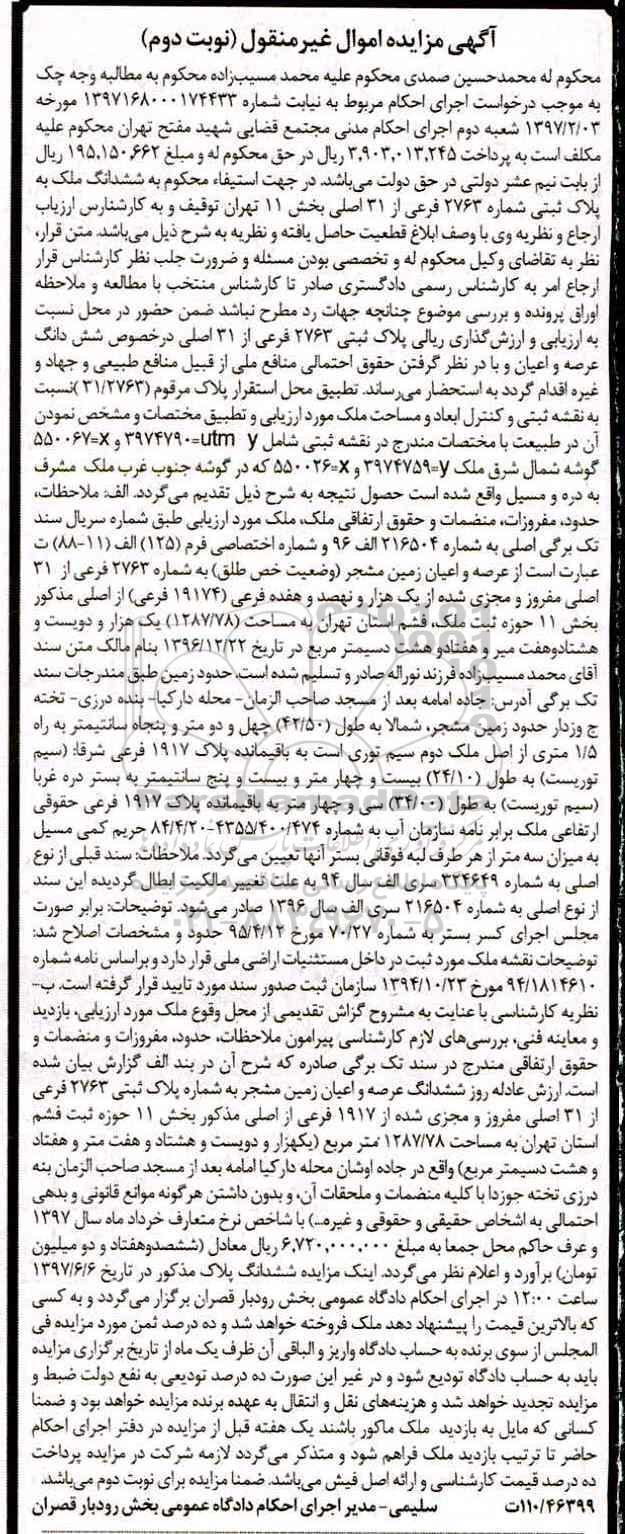 آگهی مزایده اموال غیرمنقول (نوبت دوم)
محکوم له محمدحسین صمدی محکوم علیه محمد مسیب‌زاده محکوم به مطالبه وجه چک
به موجب درخواست اجرای احکام مربوط به نیابت شماره ۱۳۹۷۱۶۸۰۰۰۱۷۴۴۳۳ مورخه
۱۳۹۷/۲/۰۳ شعبه دوم اجرای احکام مدنی مجتمع قضایی شهید مفتح تهران محکوم علیه
مکلف است به پرداخت ۳,۹۰۳,۰۱۳,۲۴۵ ریال در حق محکوم له و مبلغ ۱۹۵,۱۵۰,۶۶۲ ریال
از بابت نیم عشر دولتی در حق دولت می‌باشد. در جهت استیفاء محکوم به ششدانگ ملک به
پلاک ثبتی شماره ۲۷۶۳ فرعی از ۳۱ اصلی بخش ۱۱ تهران توقیف و به کارشنارس ارزیاب
ارجاع و نظریه وی با وصف ابلاغ قطعیت حاصل یافته و نظریه به شرح ذیل می‌باشد. متن قرار،
نظر به تقاضای وکیل محکوم له و تخصصی بودن مسئله و ضرورت جلب نظر کارشناس قرار
ارجاع امر به کارشناس رسمی دادگستری صادر تا کارشناس منتخب با مطالعه و ملاحظه
اوراق پرونده و بررسی موضوع چنانچه جهات رد مطرح نباشد ضمن حضور در محل نسبت
به ارزیابی و ارزش‌گذاری ریالی پلاک ثبتی ۲۷۶۳ فرعی از ۳۱ اصلی درخصوص شش دانگ
عرصه و اعیان و با در نظر گرفتن حقوق احتمالی منافع ملی از قبیل منافع طبیعی و جهاد و
غیره اقدام گردد به استحضار می‌رساند. تطبیق محل استقرار پلاک مرقوم (۳۱/۲۷۶۳) نسبت
به نقشه ثبتی و کنترل ابعاد و مساحت ملک مورد ارزیابی و تطبیق مختصات و مشخص نمودن
آن در طبیعت با مختصات مندرج در نقشه ثبتی شامل utm y=۳۹۷۴۷۹۰ و x=۵۵۰۰۶۷
گوشه شمال شرق ملک y=۳۹۷۴۷۵۹ و x=۵۵۰۰۲۶ که در گوشه جنوب غرب ملک مشرف
به دره و مسیل واقع شده است حصول نتیجه به شرح ذیل تقدیم می‌گردد. الف: ملاحظات،
حدود، مفروزات، منضمات و حقوق ارتفاقی ملک، ملک مورد ارزیابی طبق شماره سریال سند
تک برگی اصلی به شماره ۲۱۶۵۰۴ الف ۹۶ و شماره اختصاصی فرم (۱۲۵) الف (۱۱-۸۸) ت
عبارت است از عرصه و اعیان زمین مشجر (وضعیت خص طلق) به شماره ۲۷۶۳ فرعی از ۳۱
اصلی مفروز و مجزی شده از یک هزار و نهصد و هفده فرعی (۱۹۱۷۴ فرعی) از اصلی مذکور
بخش ۱۱ حوزه ثبت ملک، فشم استان تهران به مساحت (۱۲۸۷/۷۸) یک هزار و دویست و
هشتادوهفت میر و هفتادو هشت دسیمتر مربع در تاریخ ۱۳۹۶/۱۲/۲۲ بنام مالک متن سند
آقای محمد مسیب‌زاده فرزند نوراله صادر و تسلیم شده است. حدود زمین طبق مندرجات سند
تک برگی آدرس: جاده امامه بعد از مسجد صاحب الزمان- محله دارکیا- بنده درزی- تخته
ج وزدار حدود زمین مشجر، شمالا به طول (۴۲/۵۰) چهل و دو متر و پنجاه سانتیمتر به راه
۱/۵ متری از اصل ملک دوم سیم توری است به باقیمانده پلاک ۱۹۱۷ فرعی شرقا: (سیم
توریست) به طول (۲۴/۱۰) بیست و چهار متر و بیست و پنج سانتیمتر به بستر دره غربا
(سیم توریست) به طول (۳۴/۰۰) سی و چهار متر به باقیمانده پلاک ۱۹۱۷ فرعی حقوقی
ارتفاعی ملک برابر نامه سازمان آب به شماره ۸۴/۴/۲۰-۴۳۵۵/۴۰۰/۴۷۴ حریم کمی مسیل
به میزان سه متر از هر طرف لبه فوقانی بستر آنها تعیین می‌گردد. ملاحظات: سند قبلی از نوع
اصلی به شماره ۳۲۴۶۴۹ سری الف سال ۹۴ به علت تغییر مالکیت ابطال گردیده این سند
از نوع اصلی به شماره ۲۱۶۵۰۴ سری الف سال ۱۳۹۶ صادر می‌شود. توضیحات: برابر صورت
مجلس اجرای کسر بستر به شماره ۷۰/۲۷ مورخ ۹۵/۴/۱۲ حدود و مشخصات اصلاح شد:
توضیحات نقشه ملک مورد ثبت در داخل مستثنیات اراضی ملی قرار دارد و براساس نامه شماره
۹۴/۱۸۱۴۶۱۰ مورخ ۱۳۹۴/۱۰/۲۳ سازمان ثبت صدور سند مورد تایید قرار گرفته است. ب-
نظریه کارشناسی با عنایت به مشروح گزاش تقدیمی از محل وقوع ملک مورد ارزیابی، بازدید
و معاینه فنی، بررسی‌های لازم کارشناسی پیرامون ملاحظات، حدود، مفروزات و منضمات و
حقوق ارتفاقی مندرج در سند تک برگی صادره که شرح آن در بند الف گزارش بیان شده
است. ارزش عادله روز ششدانگ عرصه و اعیان زمین مشجر به شماره پلاک ثبتی ۲۷۶۳ فرعی
از ۳۱ اصلی مفروز و مجزی شده از ۱۹۱۷ فرعی از اصلی مذکور بخش ۱۱ حوزه ثبت فشم
استان تهران به مساحت ۱۲۸۷/۷۸ متر مربع (یکهزار و دویست و هشتاد و هفت متر و هفتاد
و هشت دسیمتر مربع) واقع در جاده اوشان محله دارکیا امامه بعد از مسجد صاحب الزمان بنه
درزی تخته جوزدا با کلیه منضمات و ملحقات آن، و بدون داشتن هرگونه موانع قانونی و بدهی
احتمالی به اشخاص حقیقی و حقوقی و غیره...) با شاخص نرخ متعارف خرداد ماه سال ۱۳۹۷
و عرف حاکم محل جمعا به مبلغ ۶,۷۲۰,۰۰۰,۰۰۰ ریال معادل (ششصدوهفتاد و دو میلیون
تومان) برآورد و اعلام نظر می‌گردد. اینک مزایده ششدانگ پلاک مذکور در تاریخ ۱۳۹۷/۶/۶
ساعت ۱۲:۰۰ در اجرای احکام دادگاه عمومی بخش رودبار قصران برگزار می‌گردد و به کسی
که بالاترین قیمت را پیشنهاد دهد ملک فروخته خواهد شد و ده درصد ثمن مورد مزایده فی
المجلس از سوی برنده به حساب دادگاه واریز و الباقی آن ظرف یک ماه از تاریخ برگزاری مزایده
باید به حساب دادگاه تودیع شود و در غیر این صورت ده درصد تودیعی به نفع دولت ضبط و
مزایده تجدید خواهد شد و هزینه‌های نقل و انتقال به عهده برنده مزایده خواهد بود و ضمنا
کسانی که مایل به بازدید ملک ماکور باشند یک هفته قبل از مزایده در دفتر اجرای احکام
حاضر تا ترتیب بازدید ملک فراهم شود و متذکر می‌گردد لازمه شرکت در مزایده پرداخت
ده درصد قیمت کارشناسی و ارائه اصل فیش می‌باشد. ضمنا مزایده برای نوبت دوم می‌باشد.
۱۱۰/۴۶۳۹۹ت سلیمی- مدیر اجرای احکام دادگاه عمومی بخش رودبار قصران